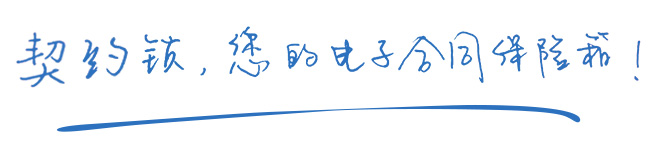 契约锁,您的电子合同保险箱!